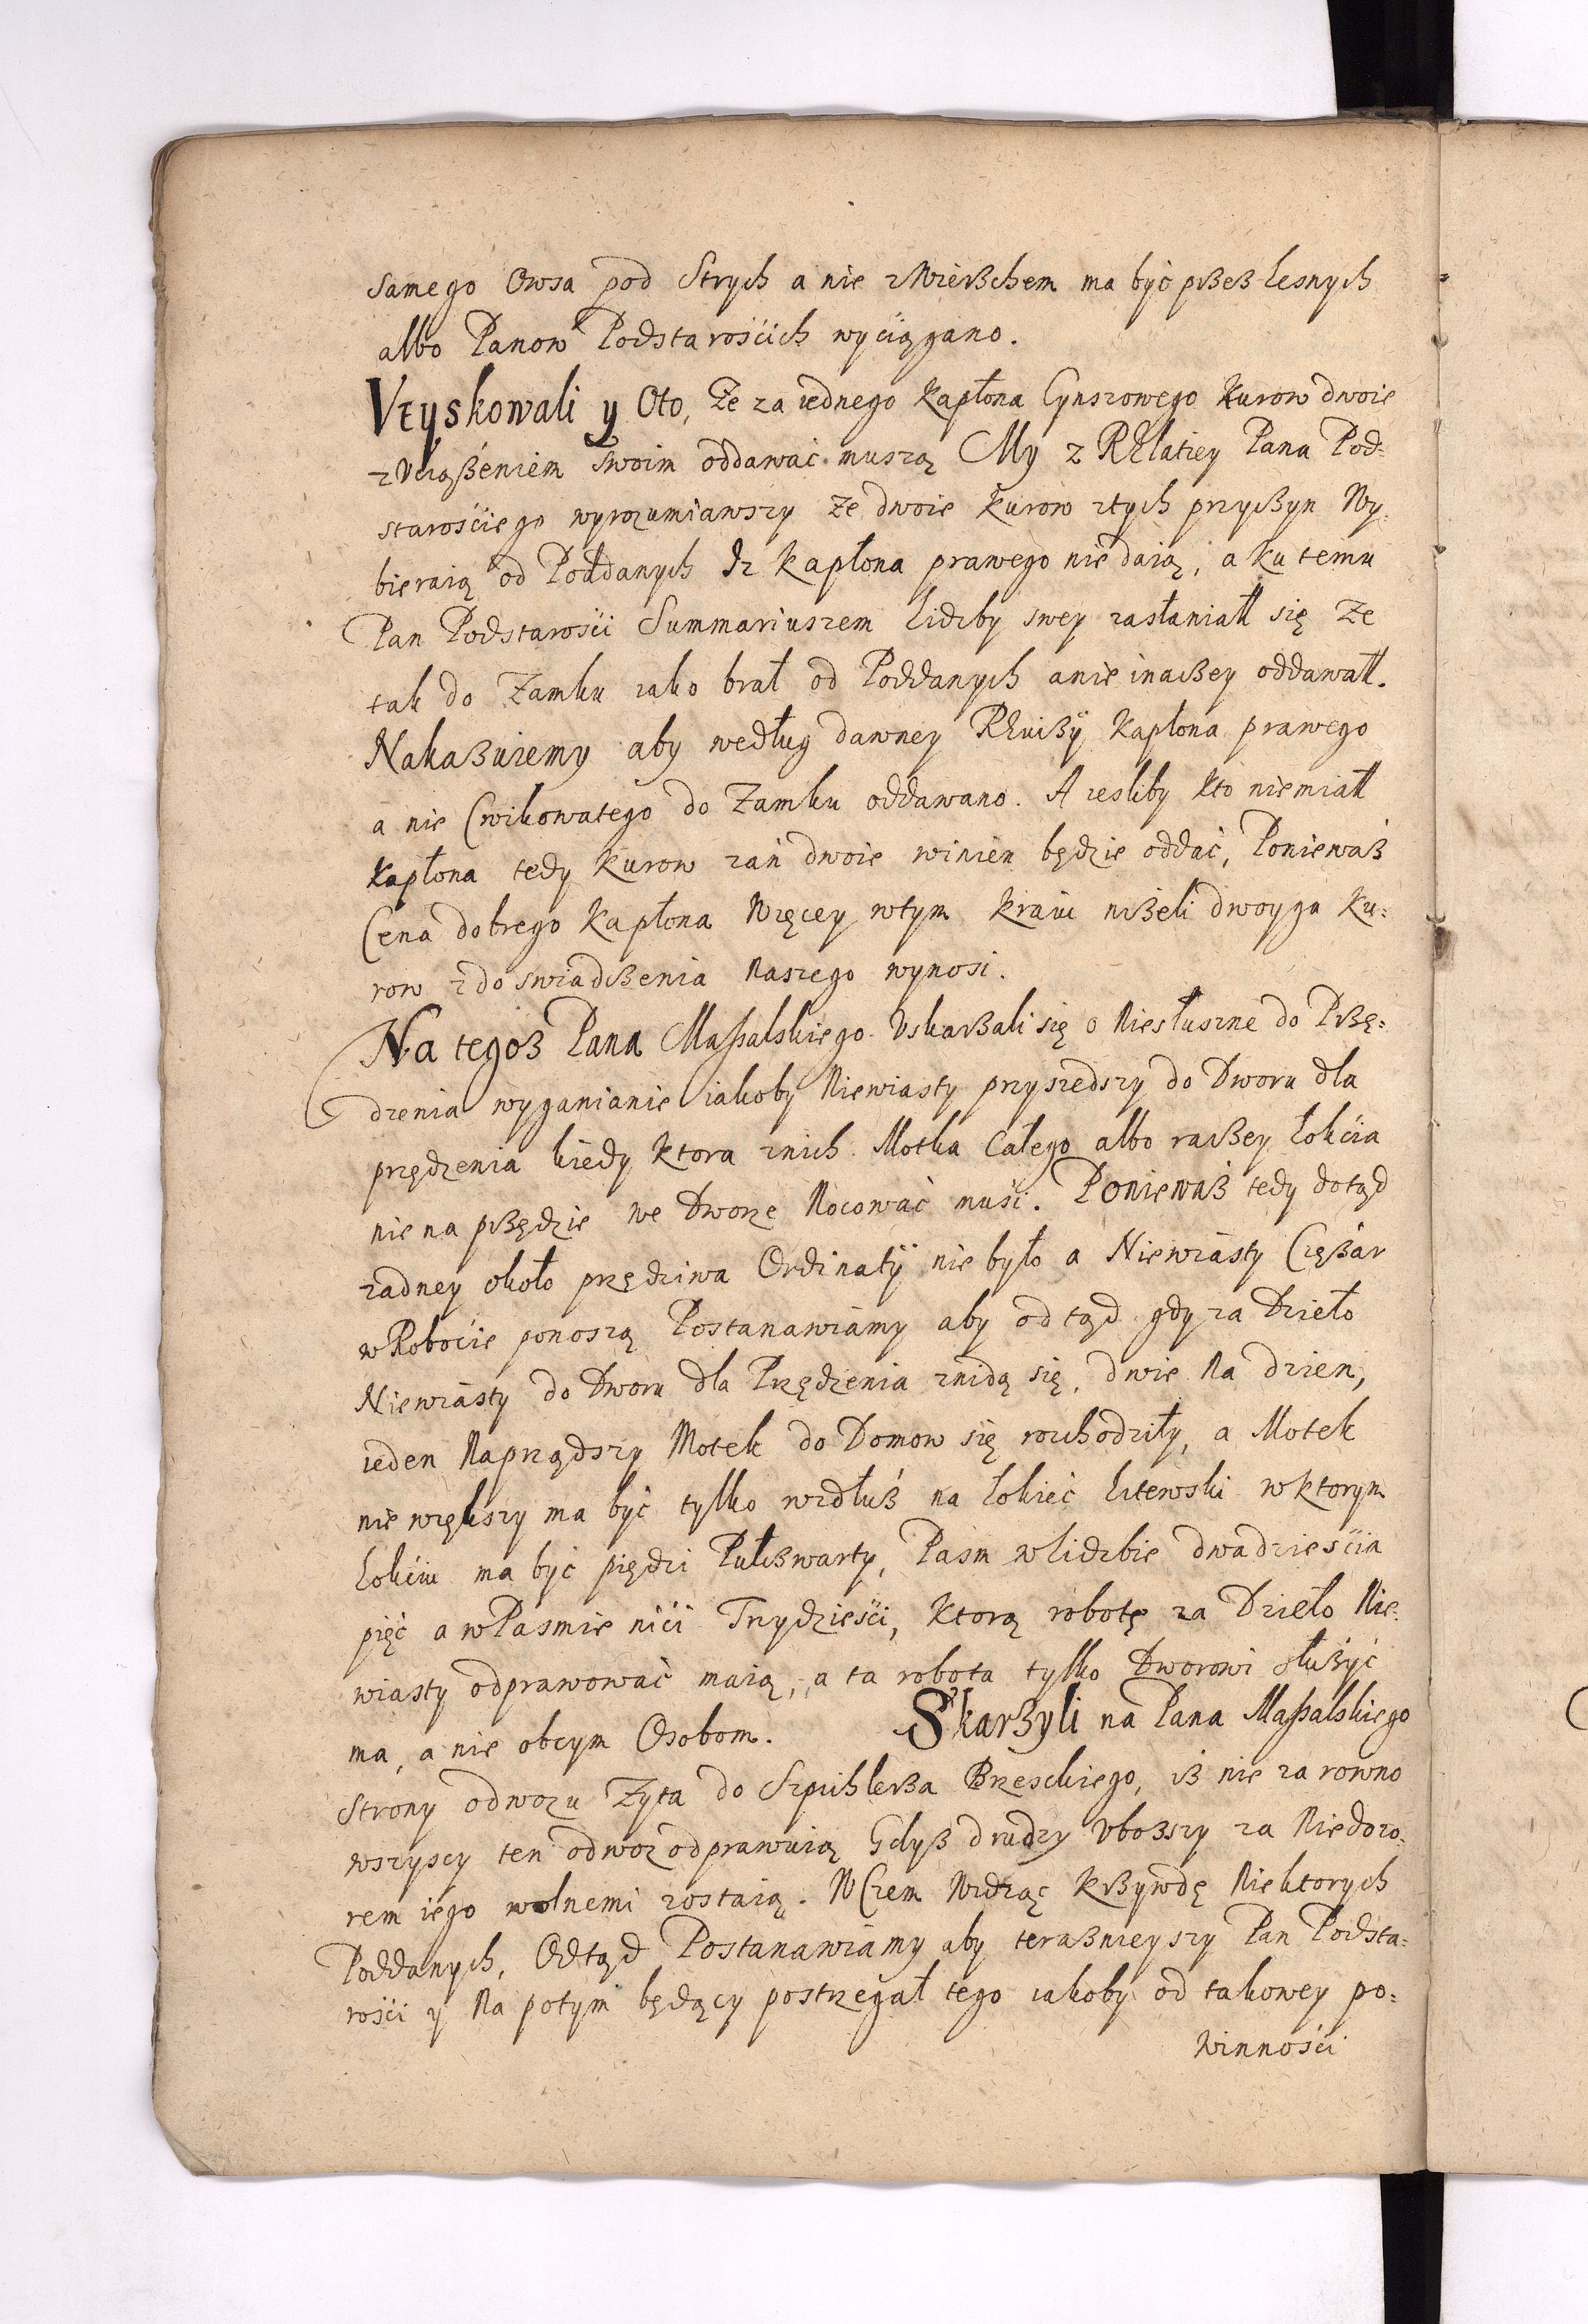 samego Owsa pod Strych a nie zWieʒchem ma być pʒeʒ Lesnych
albo Panow Podstarościch wyciągano.
Vtyskowali y Oto, Ze za iednego kapłona Cynszowego kurow dwoie
zVciążeniem swoim oddawać muszą My z Rhelatiey Pana Pod:
starościego wyrozumiawszy ze dwoie kurow ztych przyczyn Wy:
bieraią od Poddanych Iz kapłona prawego nie daią, a ku temu
Pan Podstarości Summariuszem Liczby swey zasłaniałł się ze
tak do Zamku iako brał od Poddanych a nie inaczey oddawałł.
Nakaʒuiemy aby według dawney Rhewiʒÿ kapłona prawego
a nie Cwikowatego do Zamku oddawano. A iesliby kto niemiałł
kapłona tedy kurow zań dwoie winien będzie oddać, Poniewaʒ
Cena dobrego kapłona Więcey wtym kraiu niʒeli dwoyga ku:
row zdoswiadczenia naszego wynosi.
Na tegoʒ Pana Maszalskiego Vskarʒali się o niesłuszne do Pʒę:
dzenia wyganianie iakoby Niewiasty przyszedszy do Dworu dla
przędzenia kiedy ktora znich Motka Całego albo raczey Łokcia
nie napʒędzie we Dworze Nocować musi. Poniewaʒ tedy dotąd
żadney około przędziwa Ordinatÿ nie było a Niewiasty Cięʒar
wRobocie ponoszą Postanawiamy aby od tąd gdy za Dzieło
Niewiasty do Dworu dla Przędzenia znidą się, dwie na dzien,
ieden Naprządszy Motek do Domow się rozchodziły, a Motek
nie większy ma być tylko wzdłuʒ na Łokieć Litewski w ktorym
Łokciu ma być piędzi Pułczwarty, Pasm wliczbie dwadziescia
pięć a wPasmie nici Trzydzieści, ktorą robotę za Dzieło Nie:
wiasty odprawować maią, a ta robota tylko Dworowi słuʒyć
ma, a nie obcym Osobom. Skarʒyli na Pana Maszalskiego
Strony odwozu Zyta do Szpichlerʒa Brzeskiego, iʒ nie za rowno
wszyscy ten odwoz odprawuią Gdyʒ drudzy Vboʒszy za Niedozo:
rem iego wolnemi zostaią. WCzem Widząc kʒywdę Niektorych
Poddanych, Odtąd Postanawiamy aby teraʒnieyszy Pan Podsta:
rości y Na potym będący postrzegał tego iakoby od takowey po:
winności